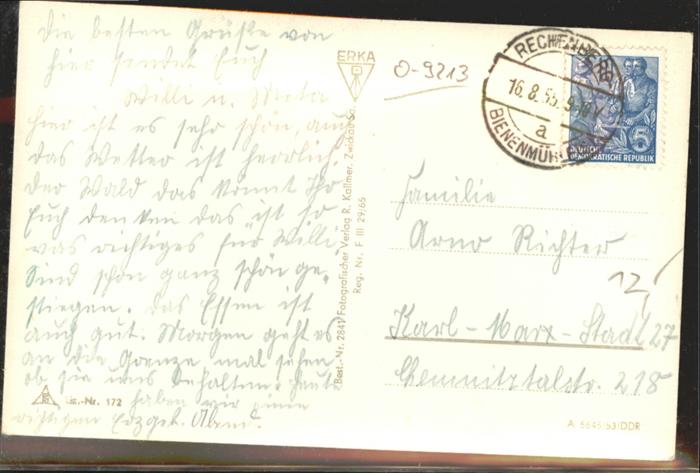 die besten Grüße von
hier sendet Euch
Willi u. Meta
hier ist es sehr schön, auch
das Wetter ist herrlich,
der Wald das könnt Ihr
Euch denken das ist so
was richtiges für Willi.
Sind schon ganz schön ge-
stiegen. Das Essen ist
auch gut. Morgen geht es
an die Grenze mal sehen
ob sie uns behalten. heute
haben wir einen
richtigen Erzgeb. Abend.
Liz.-Nr. 172
ERKA
Best.-Nr. 2841 Fotografischer Verlag R. Kallmer, Zwickau Sa.
Reg. Nr. F III 29/65
O-9213
RECHENBERG
16.8.55.
a
BIENENMÜHLE
5
DEUTSCHE
DEMOKRATISCHE REPUBLIK
Familie
Arno Richter
12,
Karl-Marx-Stadt 27
Chemnitztalstr. 218
A 5645/53/DDR